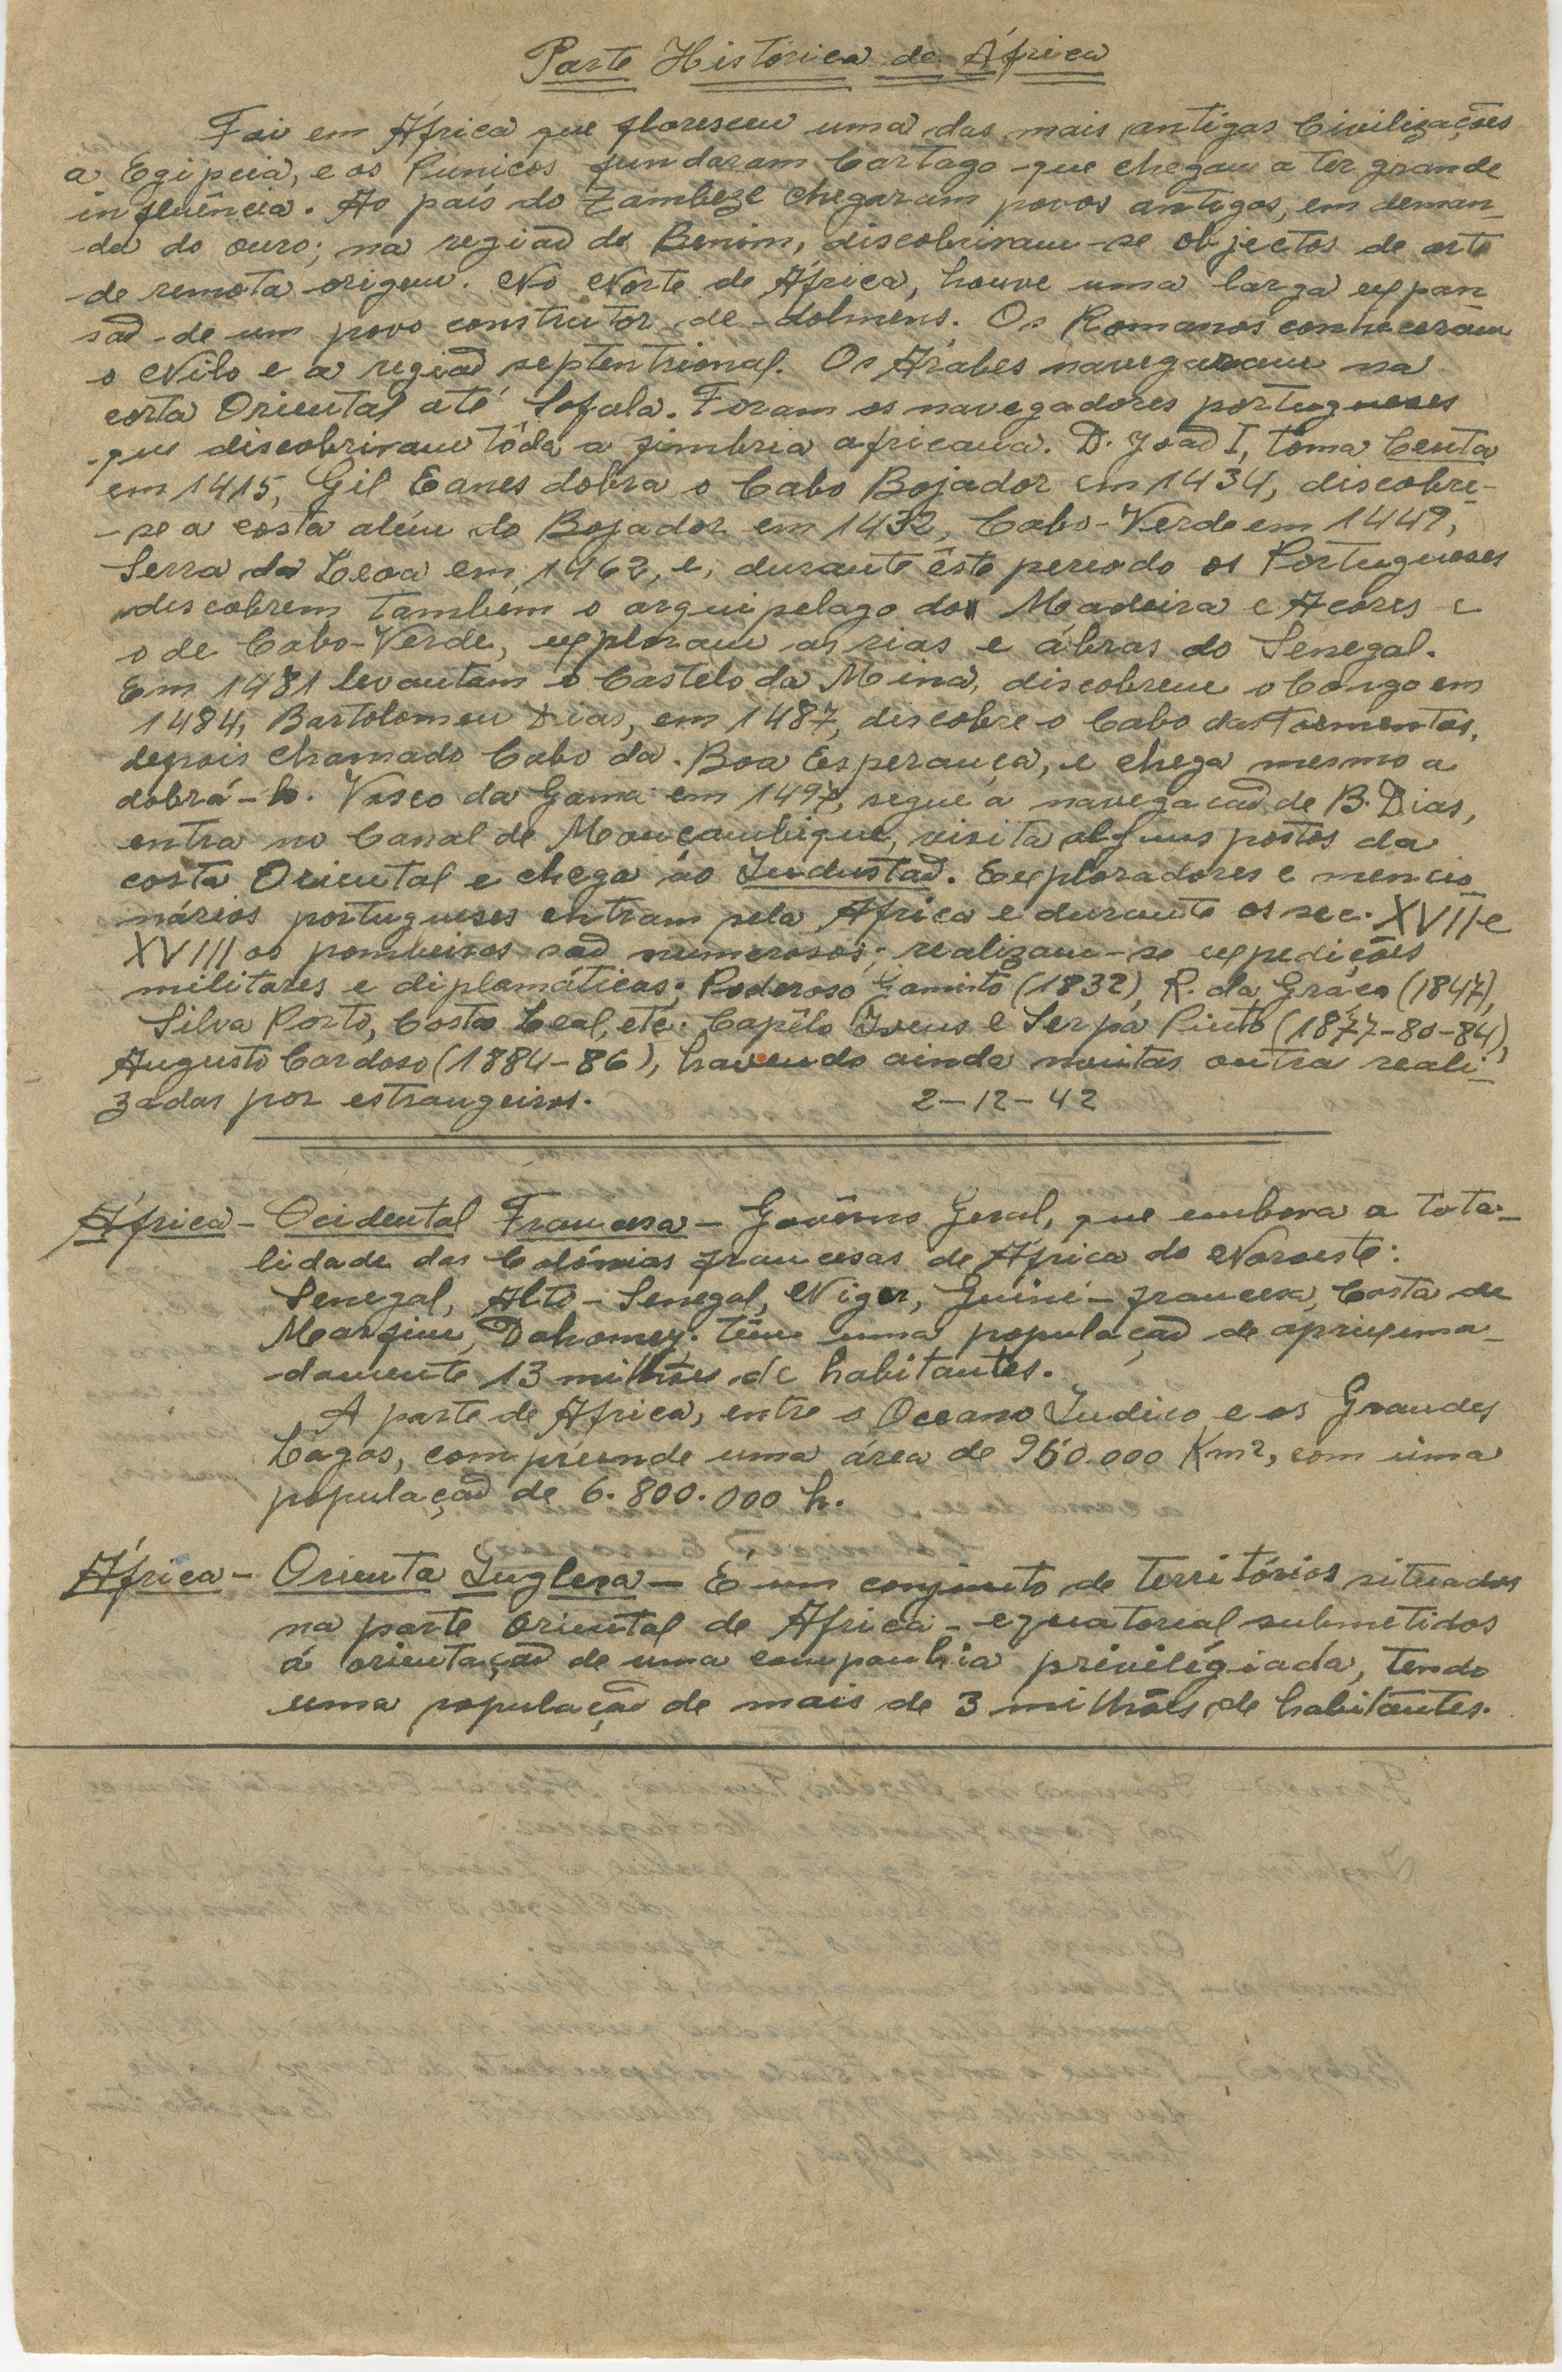 Parte Histórica da África
Foi em África que floresceu uma das mais antigas Civilizações
a Egipcia, e os Punicos fundaram Cartago que chegou a ter grande
influência. Ao país do Zambeze chegaram povos antigos, em deman_
da do ouro; na região do Benim, discobriram-se objectos de arte
de remota origem. No Norte de África, houve uma larga expan
são de um povo construtor de dolmens. Os Romanos conheceram
o Nilo e a região septentrional. Os Árabes navegaram na
costa Oriental até Sofala. Foram os navegadores portugueses
que discobriram tôda a fimbria africana. D. João I, toma Ceuta
em 1415, Gil Eanes dobra o Cabo Bojador em 1434, discobre-
-se a costa além do Bojador em 1432, Cabo-Verde em 1449,
Serra da Leoa em 1462, e, durante êste periodo os Portugueses
discobrem também o arquipelago da Madeira e Açores e
o de Cabo-Verde, exploram as rias e ábras do Senegal.
Em 1481 levantam o Castelo da Mina, discobrem o Congo em
1484, Bartolomeu Dias, em 1487, discobre o Cabo das Tormentas,
depois chamado Cabo da Boa Esperança, e chega mesmo a
dobrá-lo. Vasco da Gama em 1497, segue a navegacão de B. Dias,
entra no Canal de Mouçambique, visita alguns postos da
costa Oriental e chega ao Industão. Exploradores e mencio_
nários portugueses entram pela África e durante os sec. XVII e
XVIII os pombeiros são numerosos; realizam-se expedições
militares e diplomáticas; Poderoso Gamito (1832), R. da Graça (1847),
Silva Porto, Costa Leal, etc. Capêlo Ivens e Serpa Pinto (1877-80-84),
Augusto Cardoso (1884-86), havendo ainda muitas outra reali_
zadas por estrangeiros. 2-12-42
África - Ocidental Francesa - Govêrno Geral, que embora a tota_
lidade das Colónias francesas de África do Noroeste:
Senegal, Alto-Senegal, Niger, Guiné-francesa, Costa de
Marfim, Dahomey. Têm uma população de aproxima_
damente 13 milhões de habitantes.
A parte de África, entre o Oceano Indico e os Grandes
Lagos, compreende uma área de 960.000 Km2, com uma
população de 6.800.000 h.
África - Orienta Inglesa - É um conjunto de territórios situados
na parte Oriental de África-equatorial submetidos
á orientação de uma companhia privilégiada, tendo
uma população de mais de 3 milhões de habitantes.